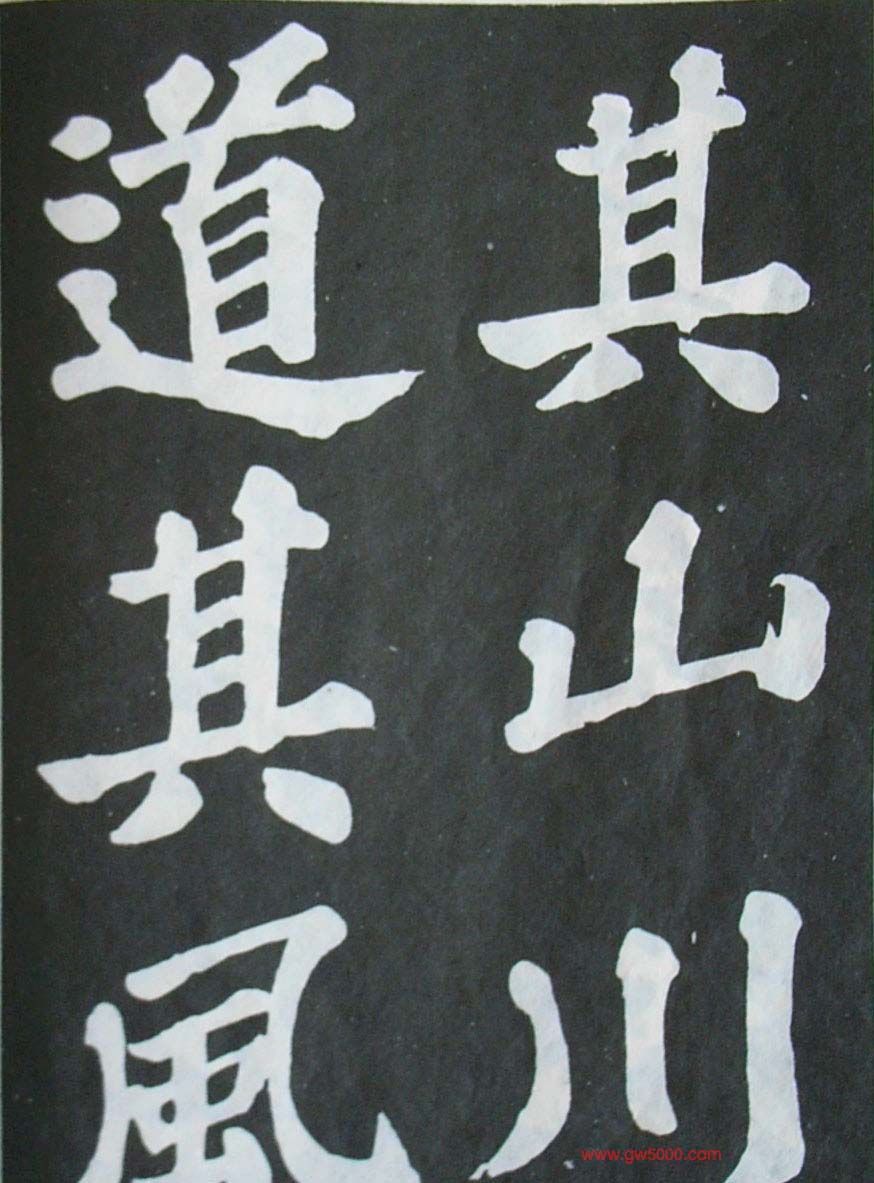 其山川
道其風
www.gw5000.com